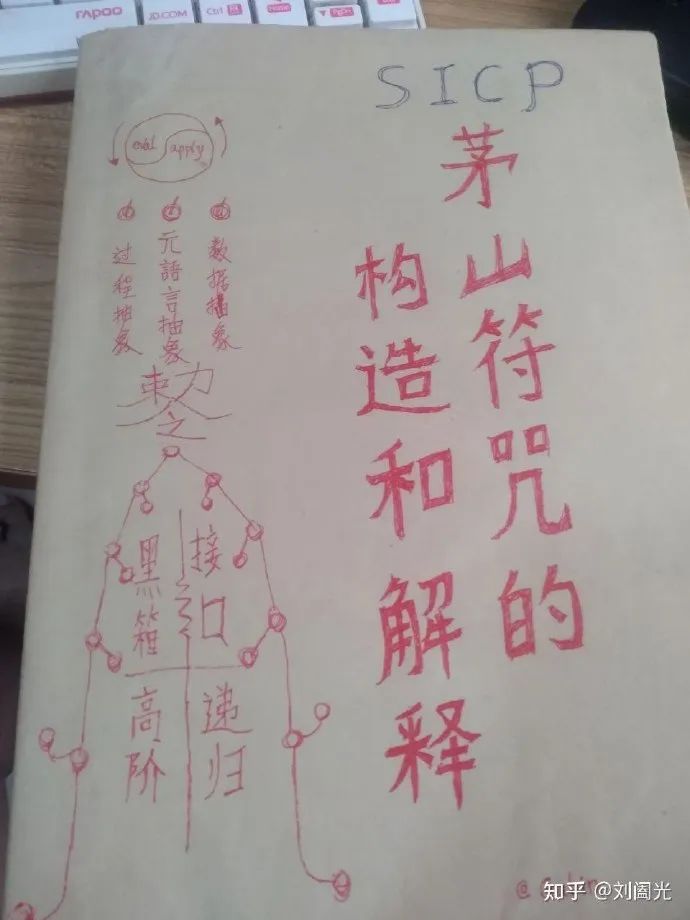 RAPOO
JD.COM
Ctrl
SICP
茅山符咒的
构造和解释
eval apply
数据抽象
元語言抽象
过程抽象
敕
之
接口
黑箱
递归
高阶
知乎 @刘阖光